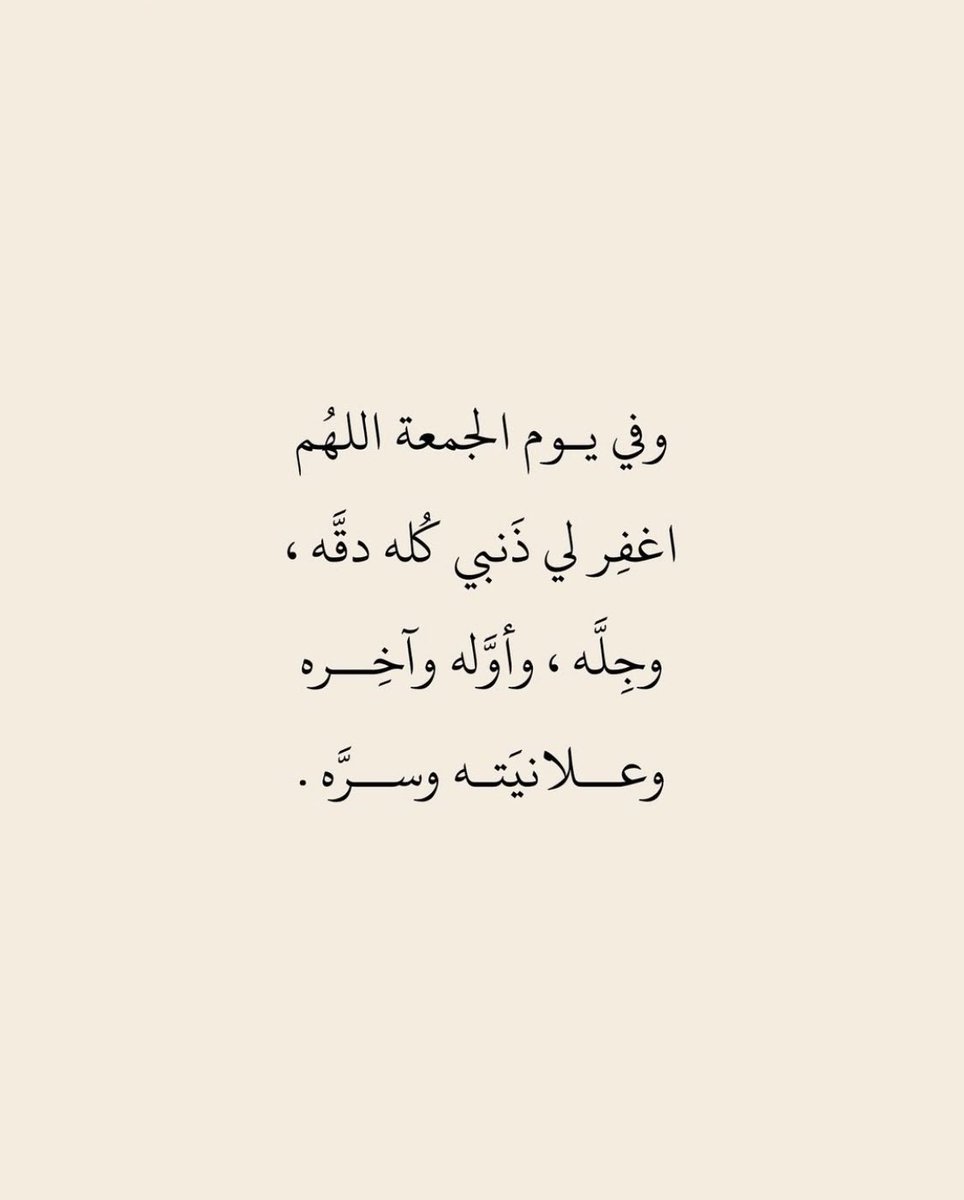 وفي يـوم الجمعة اللهُم
اغفِر لي ذَنبي كُله دقَّه ،
وجِلَّه ، وأوَّله وآخِـــره
وعـــلانيَتــه وســـرَّه .